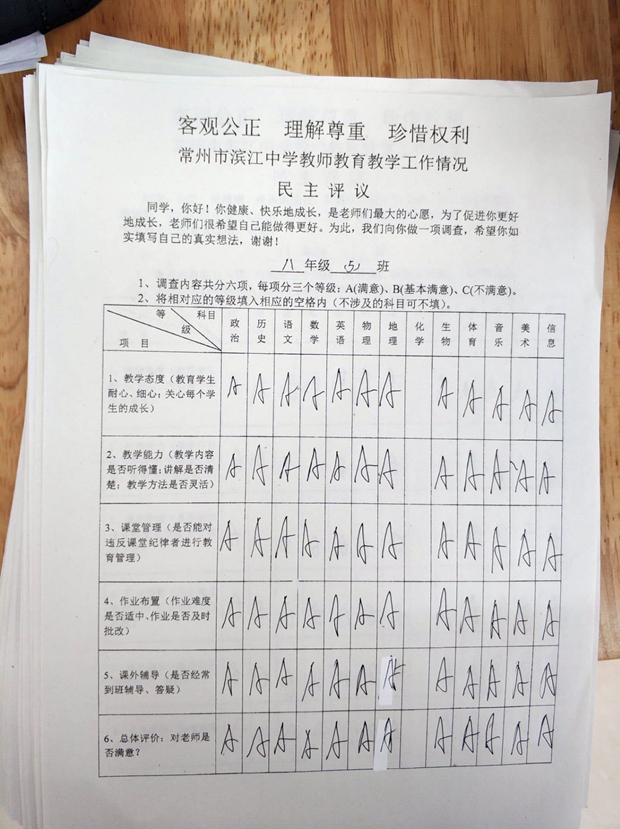 客观公正 理解尊重 珍惜权利
常州市滨江中学教师教育教学工作情况
民主评议
同学，你好！你健康、快乐地成长，是老师们最大的心愿，为了促进你更好
地成长，老师们很希望自己能做得更好。为此，我们向你做一项调查，希望你如
实填写自己的真实想法，谢谢！
八年级 班
1、调查内容共分六项，每项分三个等级：A(满意)、B(基本满意)、C(不满意)。
2、将相对应的等级填入相应的空格内（不涉及的科目可不填）。
等级 科目 项目 政治 历史 语文 数学 英语 物理 地理 化学 生物 体育 音乐 美术 信息
1、教学态度（教育学生
耐心、细心；关心每个学
生的成长）
A A A A A A A A A A A A
2、教学能力（教学内容
是否听得懂；讲解是否清
楚；教学方法是否灵活）
A A A A A A A A A A A A
3、课堂管理（是否能对
违反课堂纪律者进行教
育管理）
A A A A A A A A A A A A
4、作业布置（作业难度
是否适中、作业是否及时
批改）
A A A A A A A A A A A A
5、课外辅导（是否经常
到班辅导、答疑）
A A A A A A A A A A A A
6、总体评价：对老师是
否满意？
A A A A A A A A A A A A